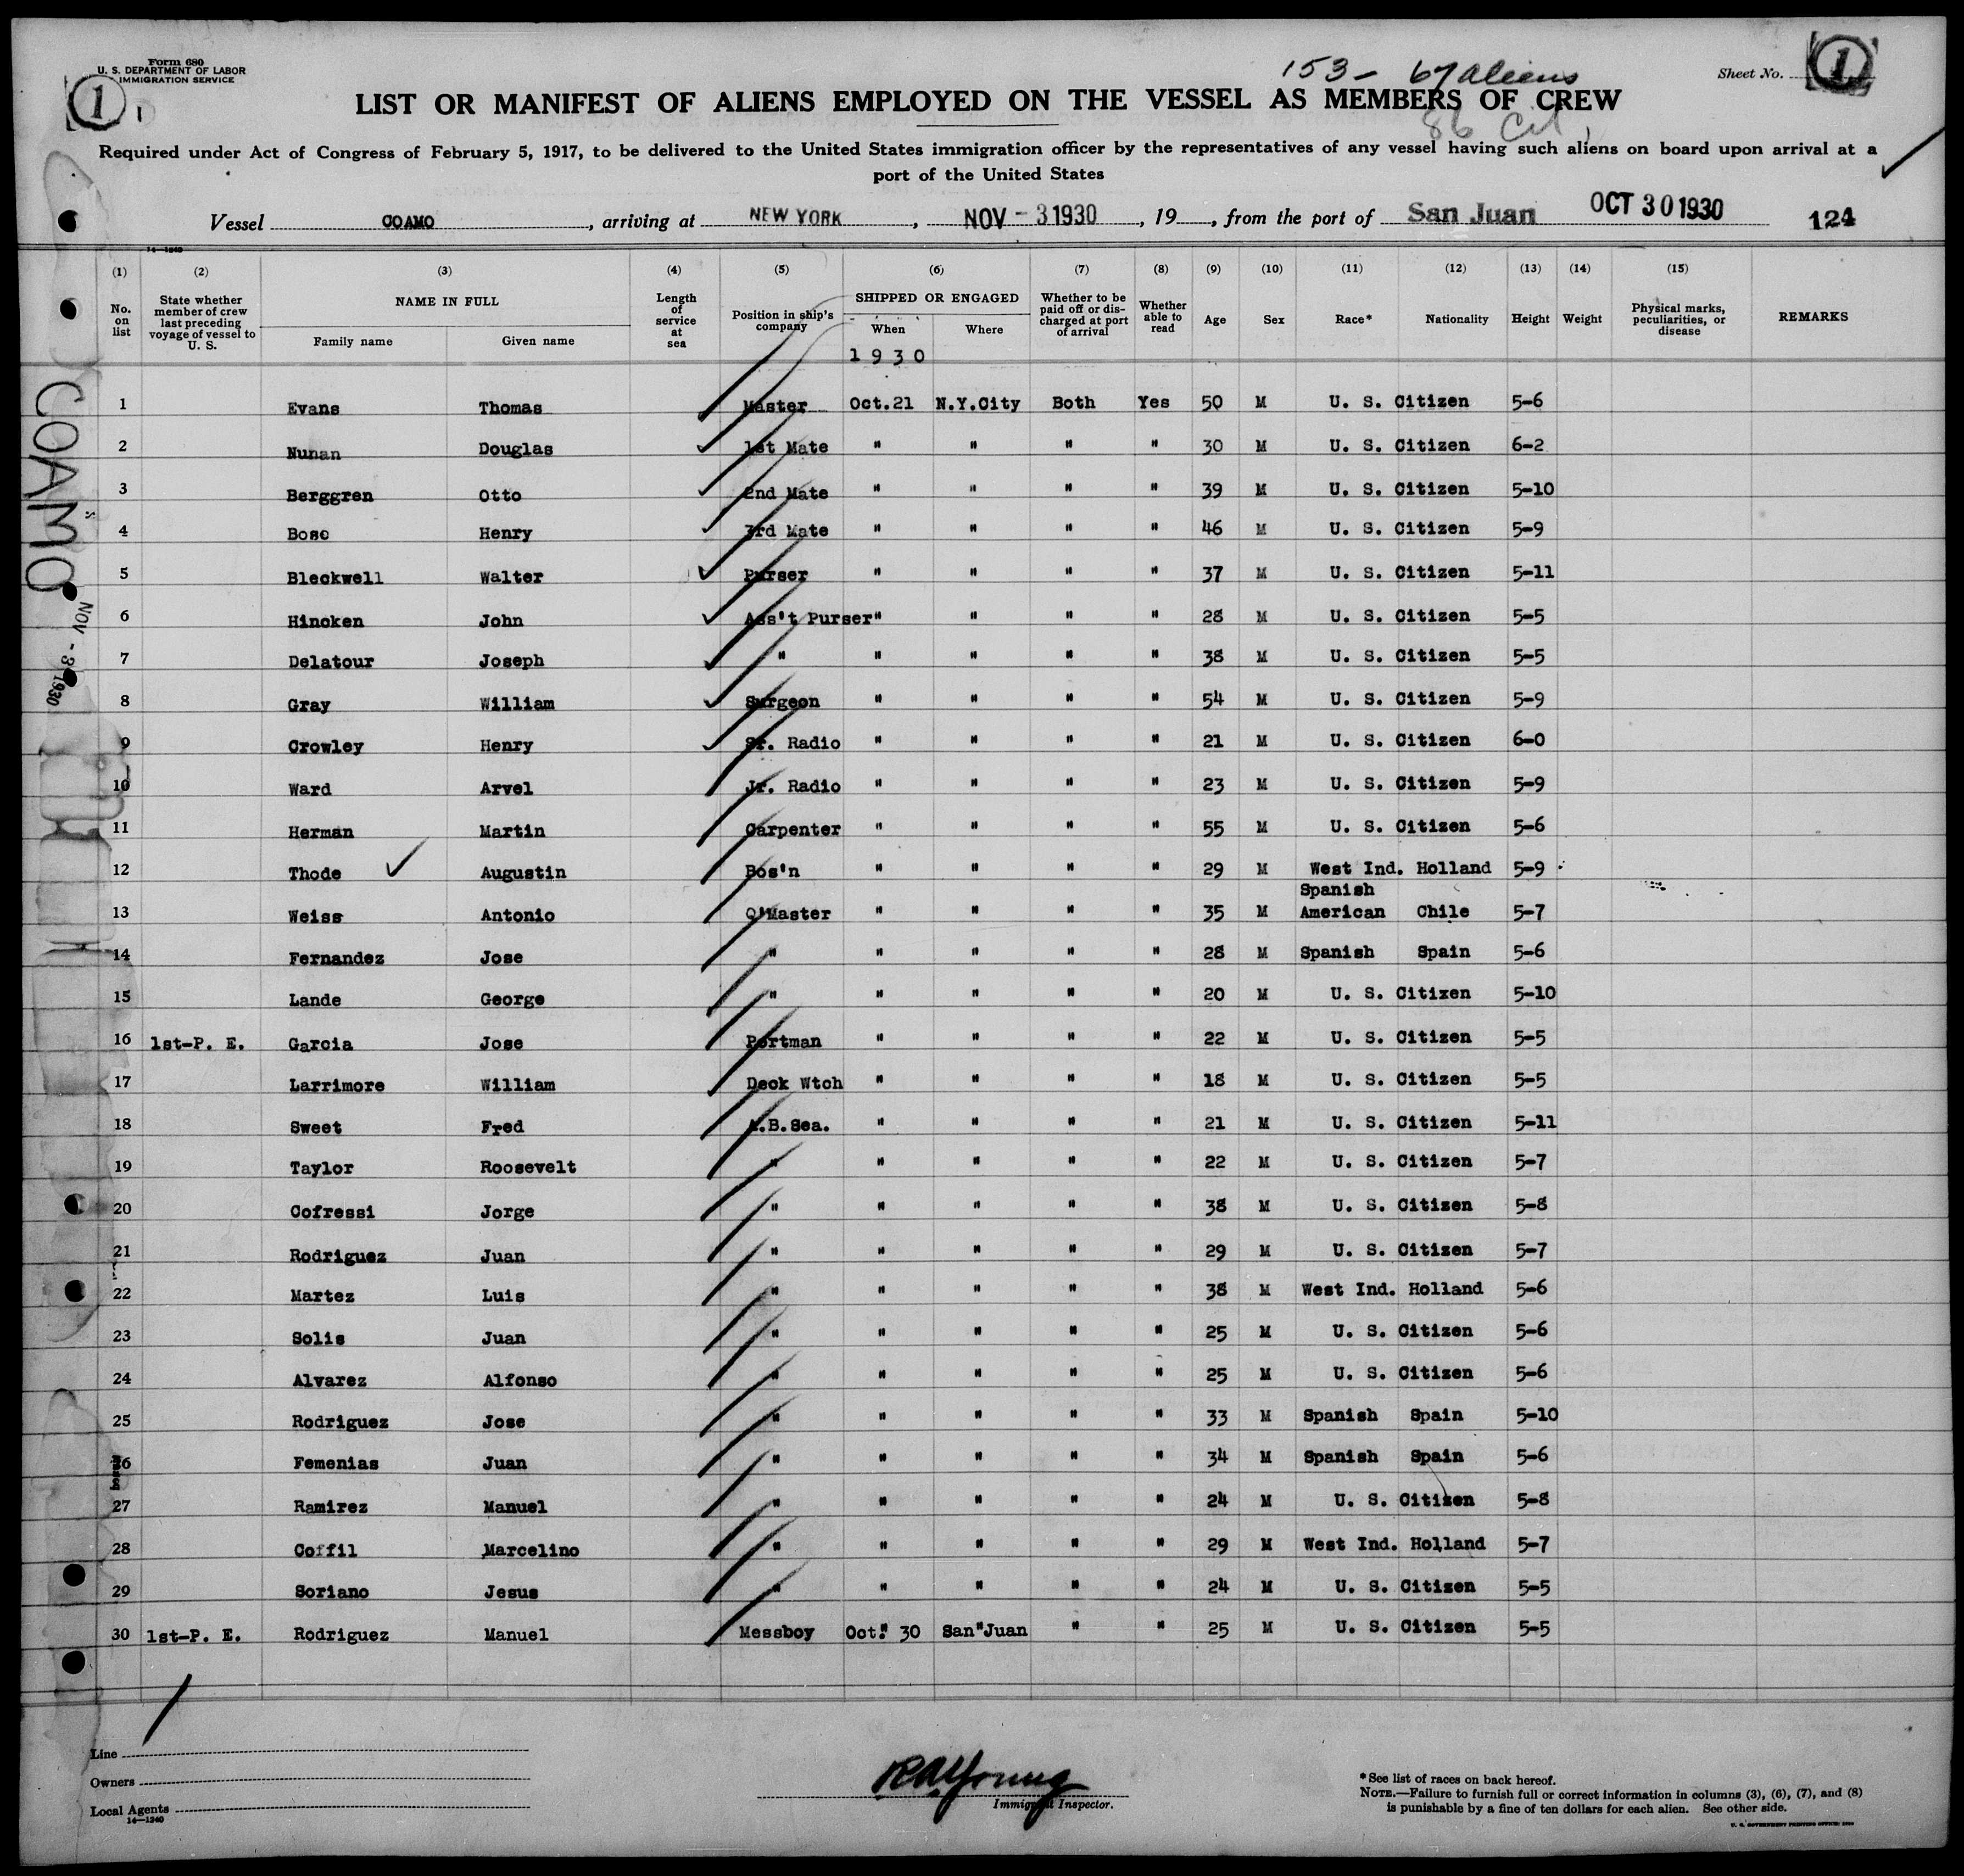 Form 680
U. S. DEPARTMENT OF LABOR
IMMIGRATION SERVICE
1
1
153 - 67 aliens
86 Cit
Sheet No. 1
LIST OR MANIFEST OF ALIENS EMPLOYED ON THE VESSEL AS MEMBERS OF CREW
Required under Act of Congress of February 5, 1917, to be delivered to the United States immigration officer by the representatives of any vessel having such aliens on board upon arrival at a
port of the United States
Vessel COAMO, arriving at NEW YORK, NOV - 3 1930, 19, from the port of San Juan OCT 30 1930 124
14—1240
(1) (2) (3) (4) (5) (6) (7) (8) (9) (10) (11) (12) (13) (14) (15)
No. on list
State whether member of crew last preceding voyage of vessel to U. S.
NAME IN FULL
Family name
Given name
Length of service at sea
Position in ship's company
SHIPPED OR ENGAGED
When
Where
Whether to be paid off or discharged at port of arrival
Whether able to read
Age
Sex
Race*
Nationality
Height
Weight
Physical marks, peculiarities, or disease
REMARKS
1930
1 Evans Thomas Master Oct.21 N.Y.City Both Yes 50 M U. S. Citizen 5-6
2 Nunan Douglas 1st Mate " " " " 30 M U. S. Citizen 6-2
3 Berggren Otto 2nd Mate " " " " 39 M U. S. Citizen 5-10
4 Bosc Henry 3rd Mate " " " " 46 M U. S. Citizen 5-9
5 Bleckwell Walter Purser " " " " 37 M U. S. Citizen 5-11
6 Hincken John Ass't Purser " " " " 28 M U. S. Citizen 5-5
7 Delatour Joseph " " " " " 38 M U. S. Citizen 5-5
8 Gray William Surgeon " " " " 54 M U. S. Citizen 5-9
9 Crowley Henry Sr. Radio " " " " 21 M U. S. Citizen 6-0
10 Ward Arvel Jr. Radio " " " " 23 M U. S. Citizen 5-9
11 Herman Martin Carpenter " " " " 55 M U. S. Citizen 5-6
12 Thode Augustin Bos'n " " " " 29 M West Ind. Holland 5-9
13 Weiss Antonio Q'Master " " " " 35 M Spanish American Chile 5-7
14 Fernandez Jose " " " " " 28 M Spanish Spain 5-6
15 Lande George " " " " " 20 M U. S. Citizen 5-10
16 1st-P. E. Garcia Jose Portman " " " " 22 M U. S. Citizen 5-5
17 Larrimore William Deck Wtch " " " " 18 M U. S. Citizen 5-5
18 Sweet Fred A.B.Sea. " " " " 21 M U. S. Citizen 5-11
19 Taylor Roosevelt " " " " " 22 M U. S. Citizen 5-7
20 Cofressi Jorge " " " " " 38 M U. S. Citizen 5-8
21 Rodriguez Juan " " " " " 29 M U. S. Citizen 5-7
22 Martez Luis " " " " " 38 M West Ind. Holland 5-6
23 Solis Juan " " " " " 25 M U. S. Citizen 5-6
24 Alvarez Alfonso " " " " " 25 M U. S. Citizen 5-6
25 Rodriguez Jose " " " " " 33 M Spanish Spain 5-10
26 Femenias Juan " " " " " 34 M Spanish Spain 5-6
27 Ramirez Manuel " " " " " 24 M U. S. Citizen 5-8
28 Coffil Marcelino " " " " " 29 M West Ind. Holland 5-7
29 Soriano Jesus " " " " " 24 M U. S. Citizen 5-5
30 1st-P. E. Rodriguez Manuel Messboy Oct. 30 San Juan " " 25 M U. S. Citizen 5-5
COAMO
NOV - 3 1930
Line
Owners
Local Agents
14—1240
R A Young
Immigrant Inspector.
* See list of races on back hereof.
NOTE.—Failure to furnish full or correct information in columns (3), (6), (7), and (8)
is punishable by a fine of ten dollars for each alien. See other side.